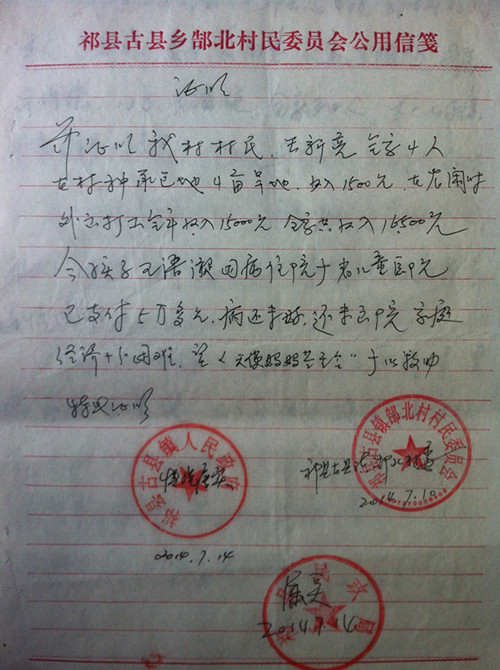 祁县古县乡郜北村民委员会公用信笺
证明
兹证明我村村民,王新亮全家4人
在村种承包地4亩旱地,收入1500元,在农闲时
外出打工全年收入15000元 全家共收入16500元
今孩子王语凝因病住院于省儿童医院
已支付5万多元,病还未好,还未出院 家庭
经济十分困难,望《天使妈妈基金会"予以救助
特此证明
祁县古县镇人民政府
情况属实
2014.7.14
祁县古县镇郜北村村民委员会
祁县古县镇郜北村委
2014.7.10
民政局
属实
2014.7.14